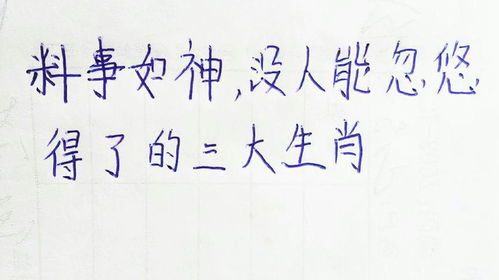 料事如神,没人能忽悠
得了的三大生肖